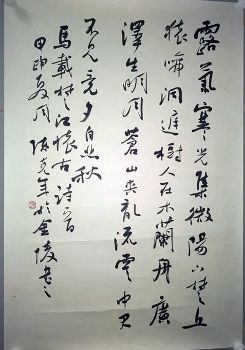 露氣寒光集微陽下楚丘
猿啼洞庭樹人在木蘭舟廣
澤生明月蒼山夾亂流雲中君
不見竟夕自悲秋
馬戴楚江懷古詩一首
甲申夏月 於金陵